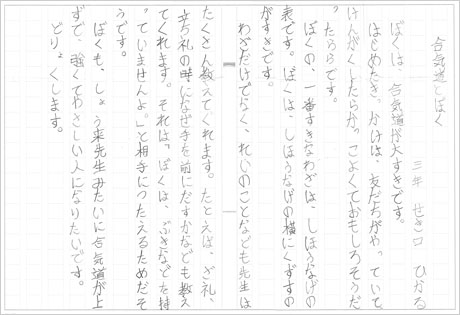 合気道とぼく
三年　せき口　ひかる
ぼくは、合気道が大すきです。
はじめたきっかけは、友だちがやっていて
けんがくしたらかっこよくておもしろそうだ
ったからです。
ぼくの、一番すきなわざは、しほうなげの
表です。ぼくは、しほうなげの横にくずすの
がすきです。
わざだけでなく、れいのことなども先生は
たくさん教えてくれます。たとえば、ざ礼、
立ち礼の時になぜ手を前にだすかなども教え
てくれます。それは、「ぼくは、ぶきなどを持
っていませんよ。」と相手につたえるためだそ
うです。
ぼくも、しょう来先生みたいに合気道が上
ずで、強くてやさしい人になりたいです。
どりょくします。